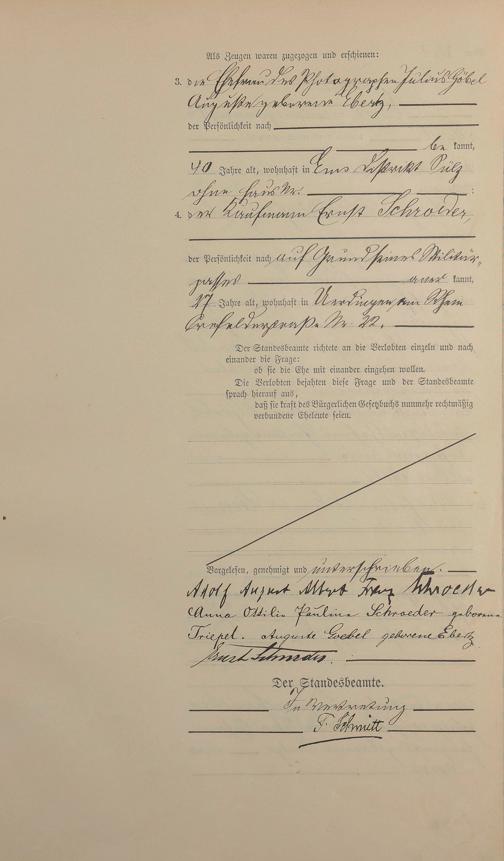 Als Zeugen waren zugezogen und erschienen:
3. die Ehefrau des Photographen Julius Göbel
Auguste geborene Ebertz,
der Persönlichkeit nach
be kannt,
40 Jahre alt, wohnhaft in Ems Distrikt Sülz
ohne Haus Nr.
4. der Kaufmann Ernst Schroeder,
der Persönlichkeit nach auf Grund seines Militär-
passes aner kannt,
27 Jahre alt, wohnhaft in Uerdingen, am Rhein
Crefelderstraße Nr. 22.
Der Standesbeamte richtete an die Verlobten einzeln und nach
einander die Frage:
ob sie die Ehe mit einander eingehen wollen.
Die Verlobten bejahten diese Frage und der Standesbeamte
sprach hierauf aus,
daß sie kraft des Bürgerlichen Gesetzbuchs nunmehr rechtmäßig
verbundene Eheleute seien.
Vorgelesen, genehmigt und unterschrieben.
Adolf August Albert Franz Schroeder
Anna Ottilie Pauline Schroeder geborene
Triepel. Auguste Goebel geborene Ebertz
Ernst Schroeder.
Der Standesbeamte.
In Vertretung
F. Schmitt